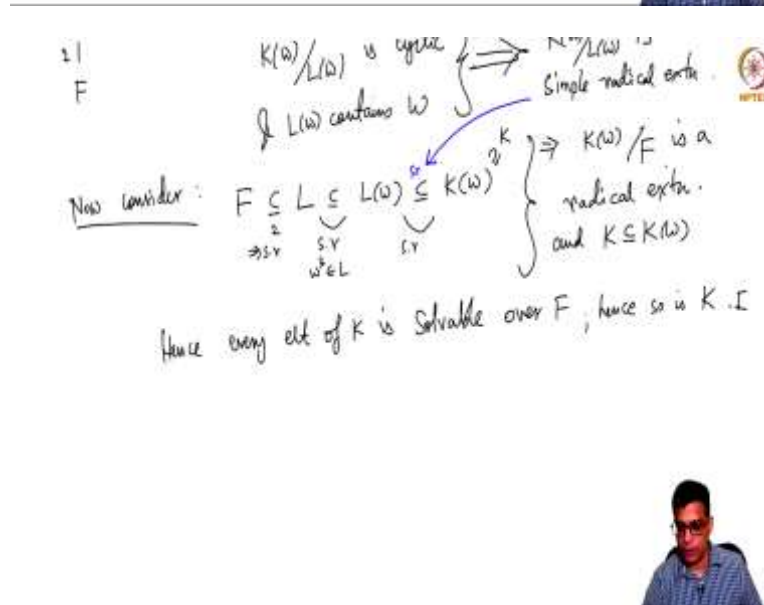 21
F
K(ω)/L(ω) is cyclic
& L(ω) contains ω
⇒ K(ω)/L(ω) is
simple radical extn.
Now consider: F ⊆ L ⊆ L(ω) ⊆ K(ω)
K
2
⇒ s.r
s.r
s.r
sr
ω³ ∈ L
⇒ K(ω)/F is a
radical extn.
and K ⊆ K(ω)
Hence every elt of K is Solvable over F, hence so is K.
NPTEL